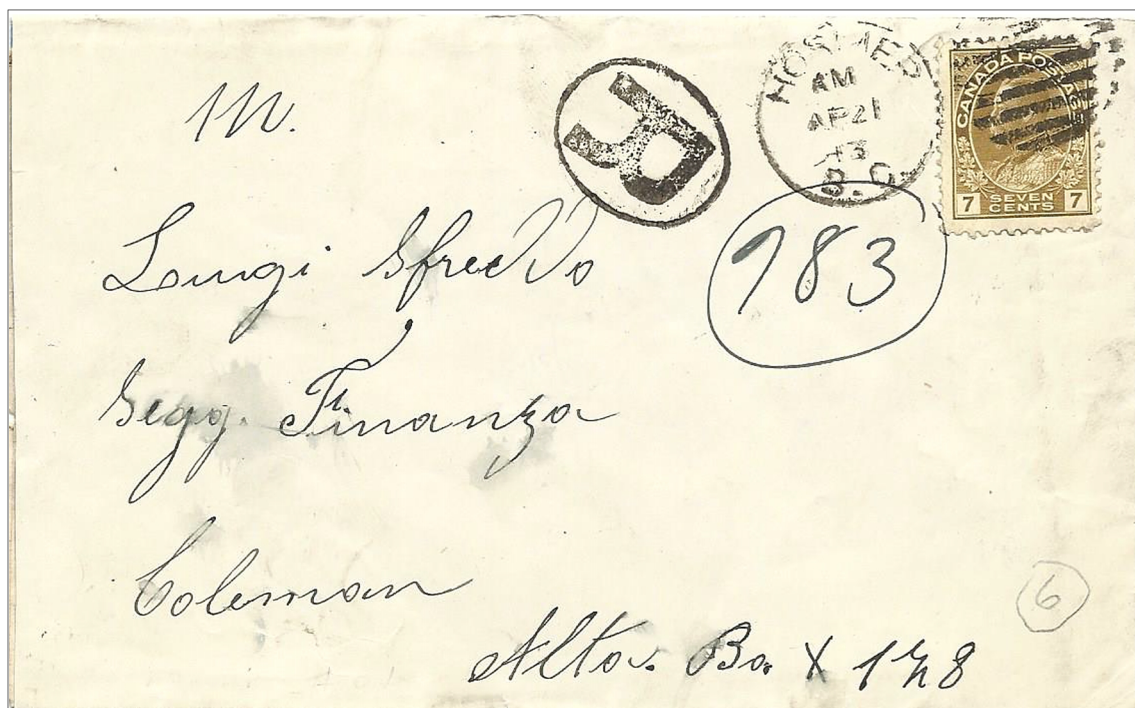 HOSMER
AM
AP 21
13
B.C.
CANADA POSTAGE
7 SEVEN CENTS 7
R
M.
983
Luigi Sfreddo
Segg. Finanza
Coleman
Alta. Box 128
6